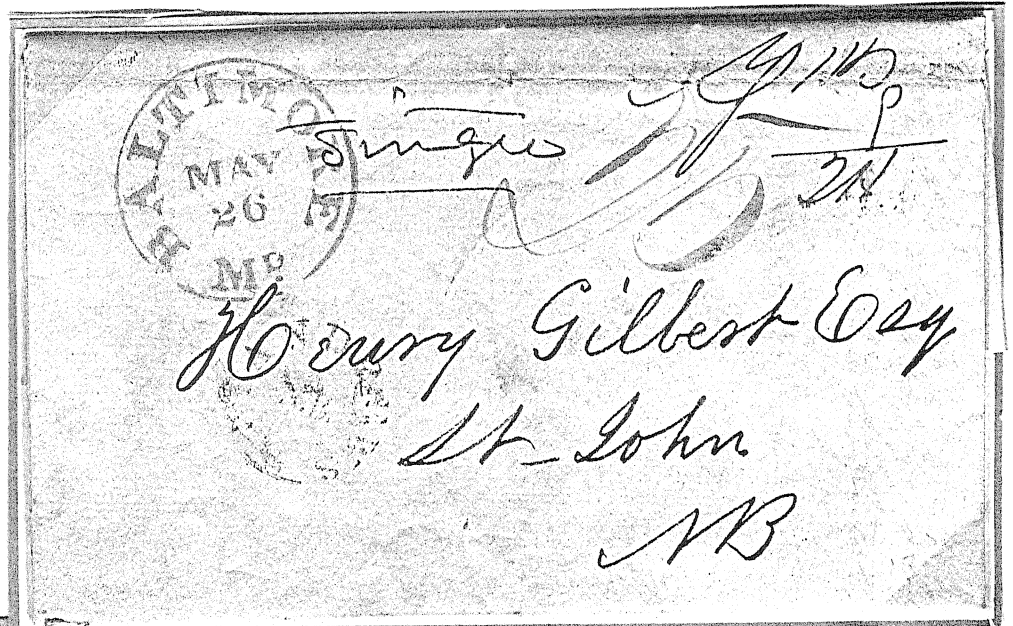 BALTIMORE
MAY
26
MD
Single
25
9
24
Henry Gilbert Esq
St-John
NB